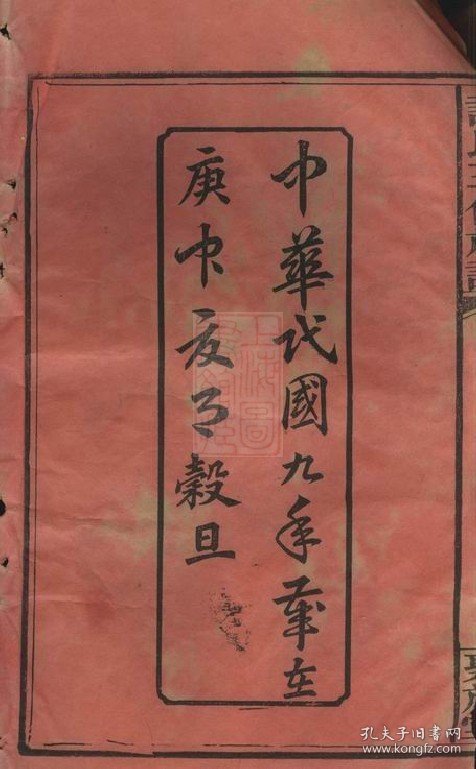 中華民國九年歲在
庚申夏月穀旦
上海圖
孔夫子旧书网
www.kongfz.com